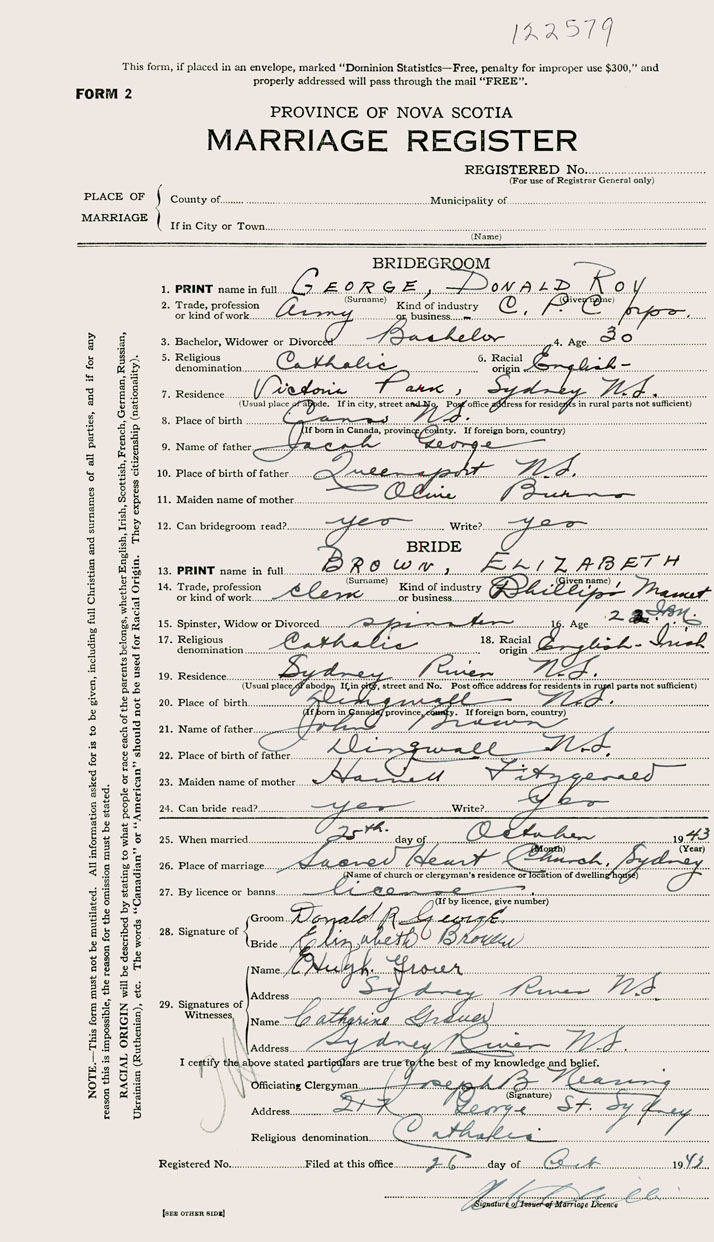 122579
This form, if placed in an envelope, marked "Dominion Statistics—Free, penalty for improper use $300," and
properly addressed will pass through the mail "FREE".
FORM 2
PROVINCE OF NOVA SCOTIA
MARRIAGE REGISTER
REGISTERED No.
(For use of Registrar General only)
PLACE OF MARRIAGE
County of Municipality of
If in City or Town
(Name)
BRIDEGROOM
1. PRINT name in full GEORGE, DONALD ROY
(Surname) (Given name)
2. Trade, profession or kind of work Army Kind of industry or business C. P. C
3. Bachelor, Widower or Divorced Bachelor 4. Age 30
5. Religious denomination Catholic 6. Racial origin English-
7. Residence Victoria Park, Sydney N.S.
(Usual place of abode. If in city, street and No. Post office address for residents in rural parts not sufficient)
8. Place of birth N.S.
(If born in Canada, province, county. If foreign born, country)
9. Name of father Jacob George
10. Place of birth of father Queensport N.S.
11. Maiden name of mother Olive Burns
12. Can bridegroom read? yes Write? yes
BRIDE
13. PRINT name in full BROWN, ELIZABETH
(Surname) (Given name)
14. Trade, profession or kind of work Clerk Kind of industry or business Phillips Market
15. Spinster, Widow or Divorced spinster 16. Age
17. Religious denomination Catholic 18. Racial origin English-Irish
19. Residence Sydney River N.S.
(Usual place of abode. If in city, street and No. Post office address for residents in rural parts not sufficient)
20. Place of birth Dingwall N.S.
(If born in Canada, province, county. If foreign born, country)
21. Name of father John Brown
22. Place of birth of father Dingwall N.S.
23. Maiden name of mother Fitzgerald
24. Can bride read? yes Write? yes
25. When married 25th. day of October 1943
(Month) (Year)
26. Place of marriage Sacred Heart Church, Sydney
(Name of church or clergyman's residence or location of dwelling house)
27. By licence or banns license
(If by licence, give number)
28. Signature of
Groom Donald R George
Bride Elizabeth Brown
29. Signatures of Witnesses
Name Hugh Grover
Address Sydney River N.S.
Name Catherine Grover
Address Sydney River N.S.
I certify the above stated particulars are true to the best of my knowledge and belief.
Officiating Clergyman Joseph B Nearing
(Signature)
Address George St. Sydney
Religious denomination Catholic
Registered No. Filed at this office 26 day of Oct 1943
Signature of Issuer of Marriage Licence
[SEE OTHER SIDE]
NOTE.—This form must not be mutilated. All information asked for is to be given, including full Christian and surnames of all parties, and if for any
reason this is impossible, the reason for the omission must be stated.
RACIAL ORIGIN will be described by stating to what people or race each of the parents belongs, whether English, Irish, Scottish, French, German, Russian,
Ukrainian (Ruthenian), etc. The words "Canadian" or "American" should not be used for Racial Origin. They express citizenship (nationality).